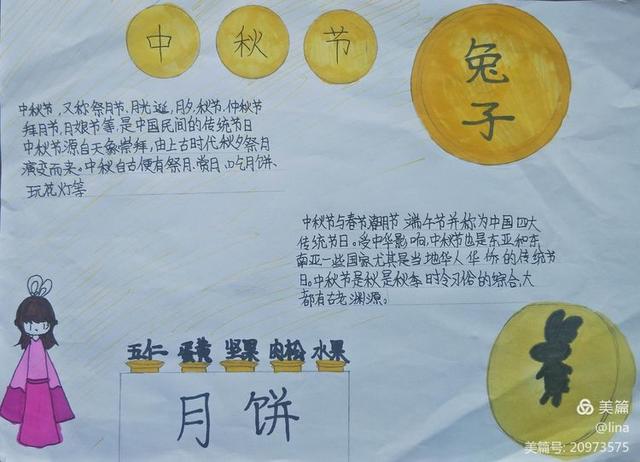 中秋节
兔子
中秋节，又称祭月节、月光诞、月夕、秋节、仲秋节
拜月节、月娘节等，是中国民间的传统节日
中秋节源自天象崇拜，由上古时代秋夕祭月
演变而来。中秋自古便有祭月、赏日、吃月饼、
玩花灯等
中秋节与春节清明节、端午节并称为中国四大
传统节日。受中华影响，中秋节也是东亚和东
南亚一些国家尤其是当地华人华侨的传统节
日。中秋节是秋是秋季时令习俗的综合，大
都有古老渊源。
五仁 蛋黄 坚果 肉松 水果
月饼
美篇
@lina
美篇号: 20973575